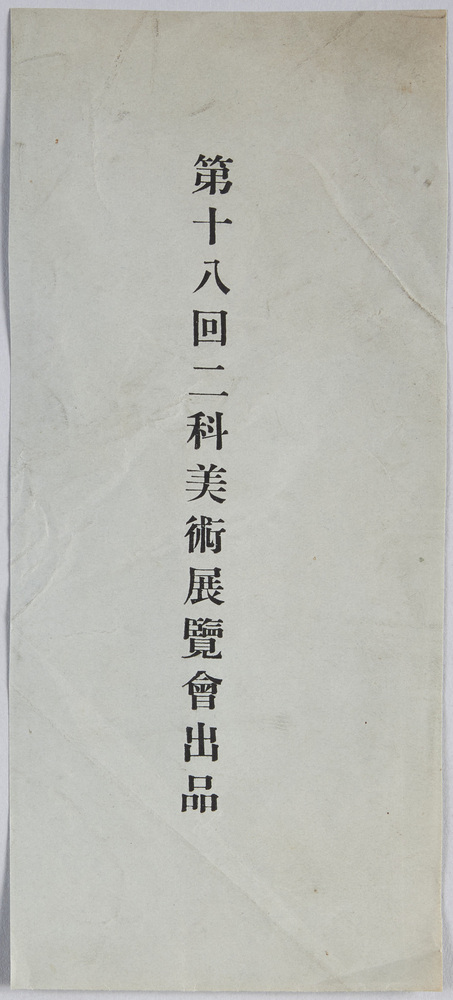 第十八回二科美術展覽會出品